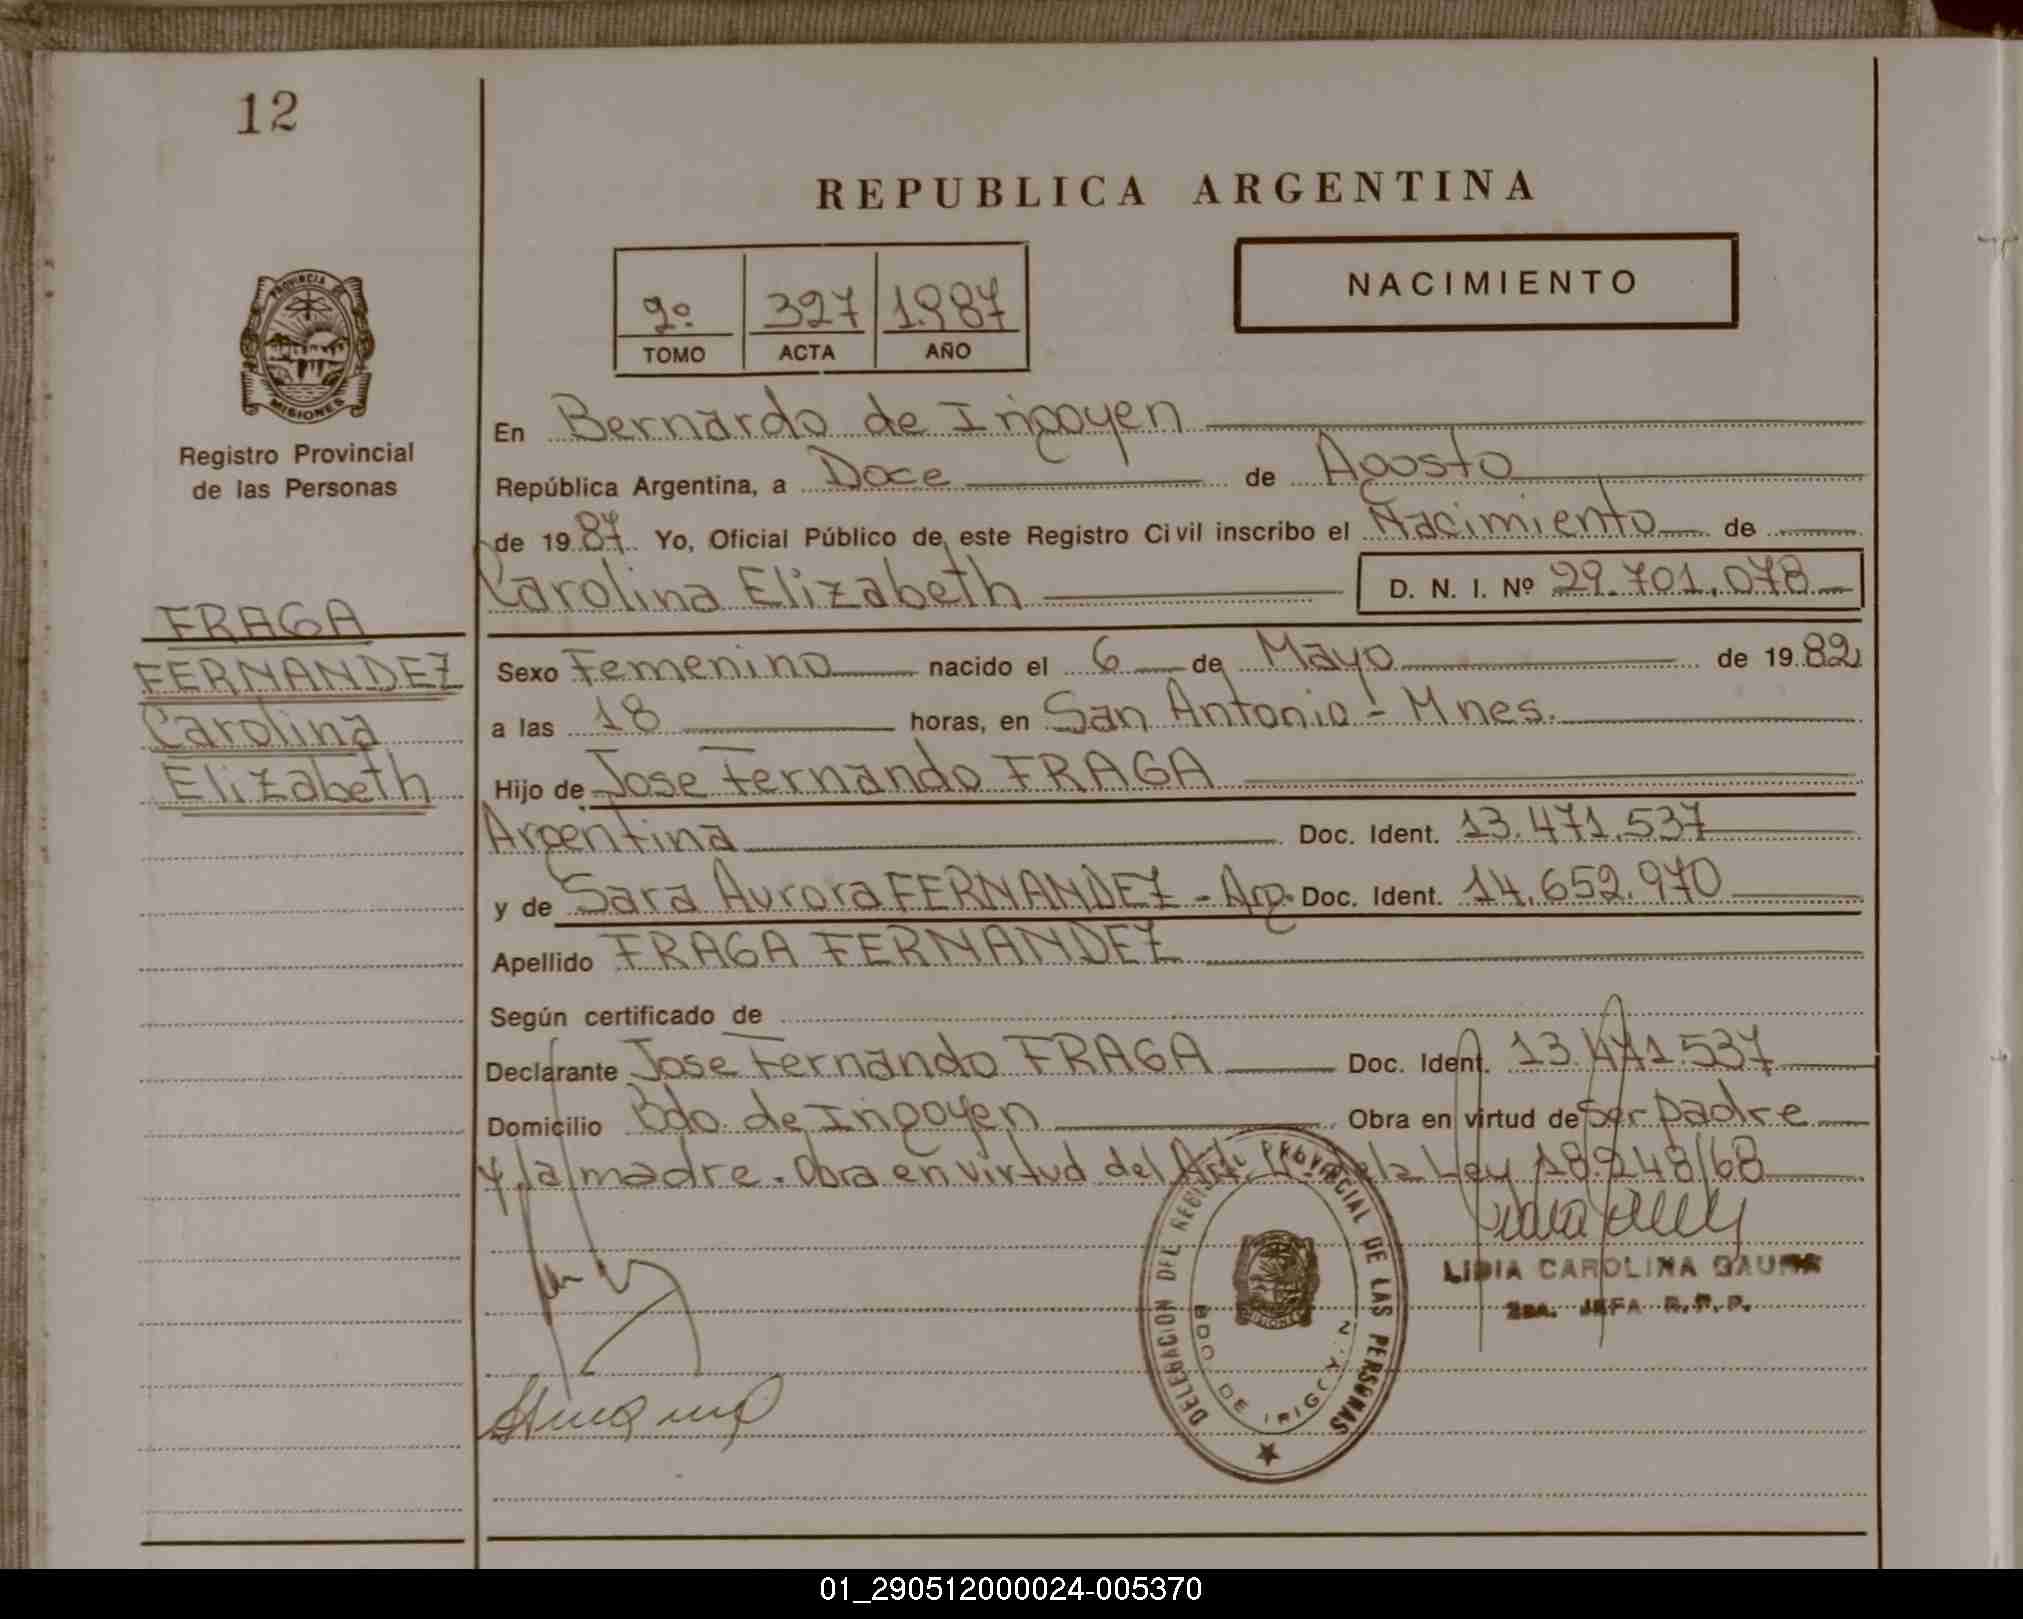 12
REPUBLICA ARGENTINA
NACIMIENTO
2º 327 1.987
TOMO ACTA AÑO
PROVINCIA DE
MISIONES
Registro Provincial
de las Personas
FRAGA
FERNANDEZ
Carolina
Elizabeth
En Bernardo de Irigoyen
República Argentina, a Doce de Agosto
de 1987. Yo, Oficial Público de este Registro Civil inscribo el Nacimiento de
Carolina Elizabeth D. N. I. Nº 29.701.078
Sexo Femenino nacido el 6 de Mayo de 1982
a las 18 horas, en San Antonio - Mnes.
Hijo de Jose Fernando FRAGA
Argentina Doc. Ident. 13.471.537
y de Sara Aurora FERNANDEZ - Arg. Doc. Ident. 14.652.970
Apellido FRAGA FERNANDEZ
Según certificado de
Declarante Jose Fernando FRAGA Doc. Ident. 13.471.537
Domicilio Bdo. de Irigoyen Obra en virtud de ser padre
y la madre. Obra en virtud del Art. de la Ley 18248/68
DELEGACION DEL REGISTRO PROVINCIAL DE LAS PERSONAS
BDO DE IRIGOYEN
LIDIA CAROLINA
2da. JEFA R.P.P.
01_290512000024-005370